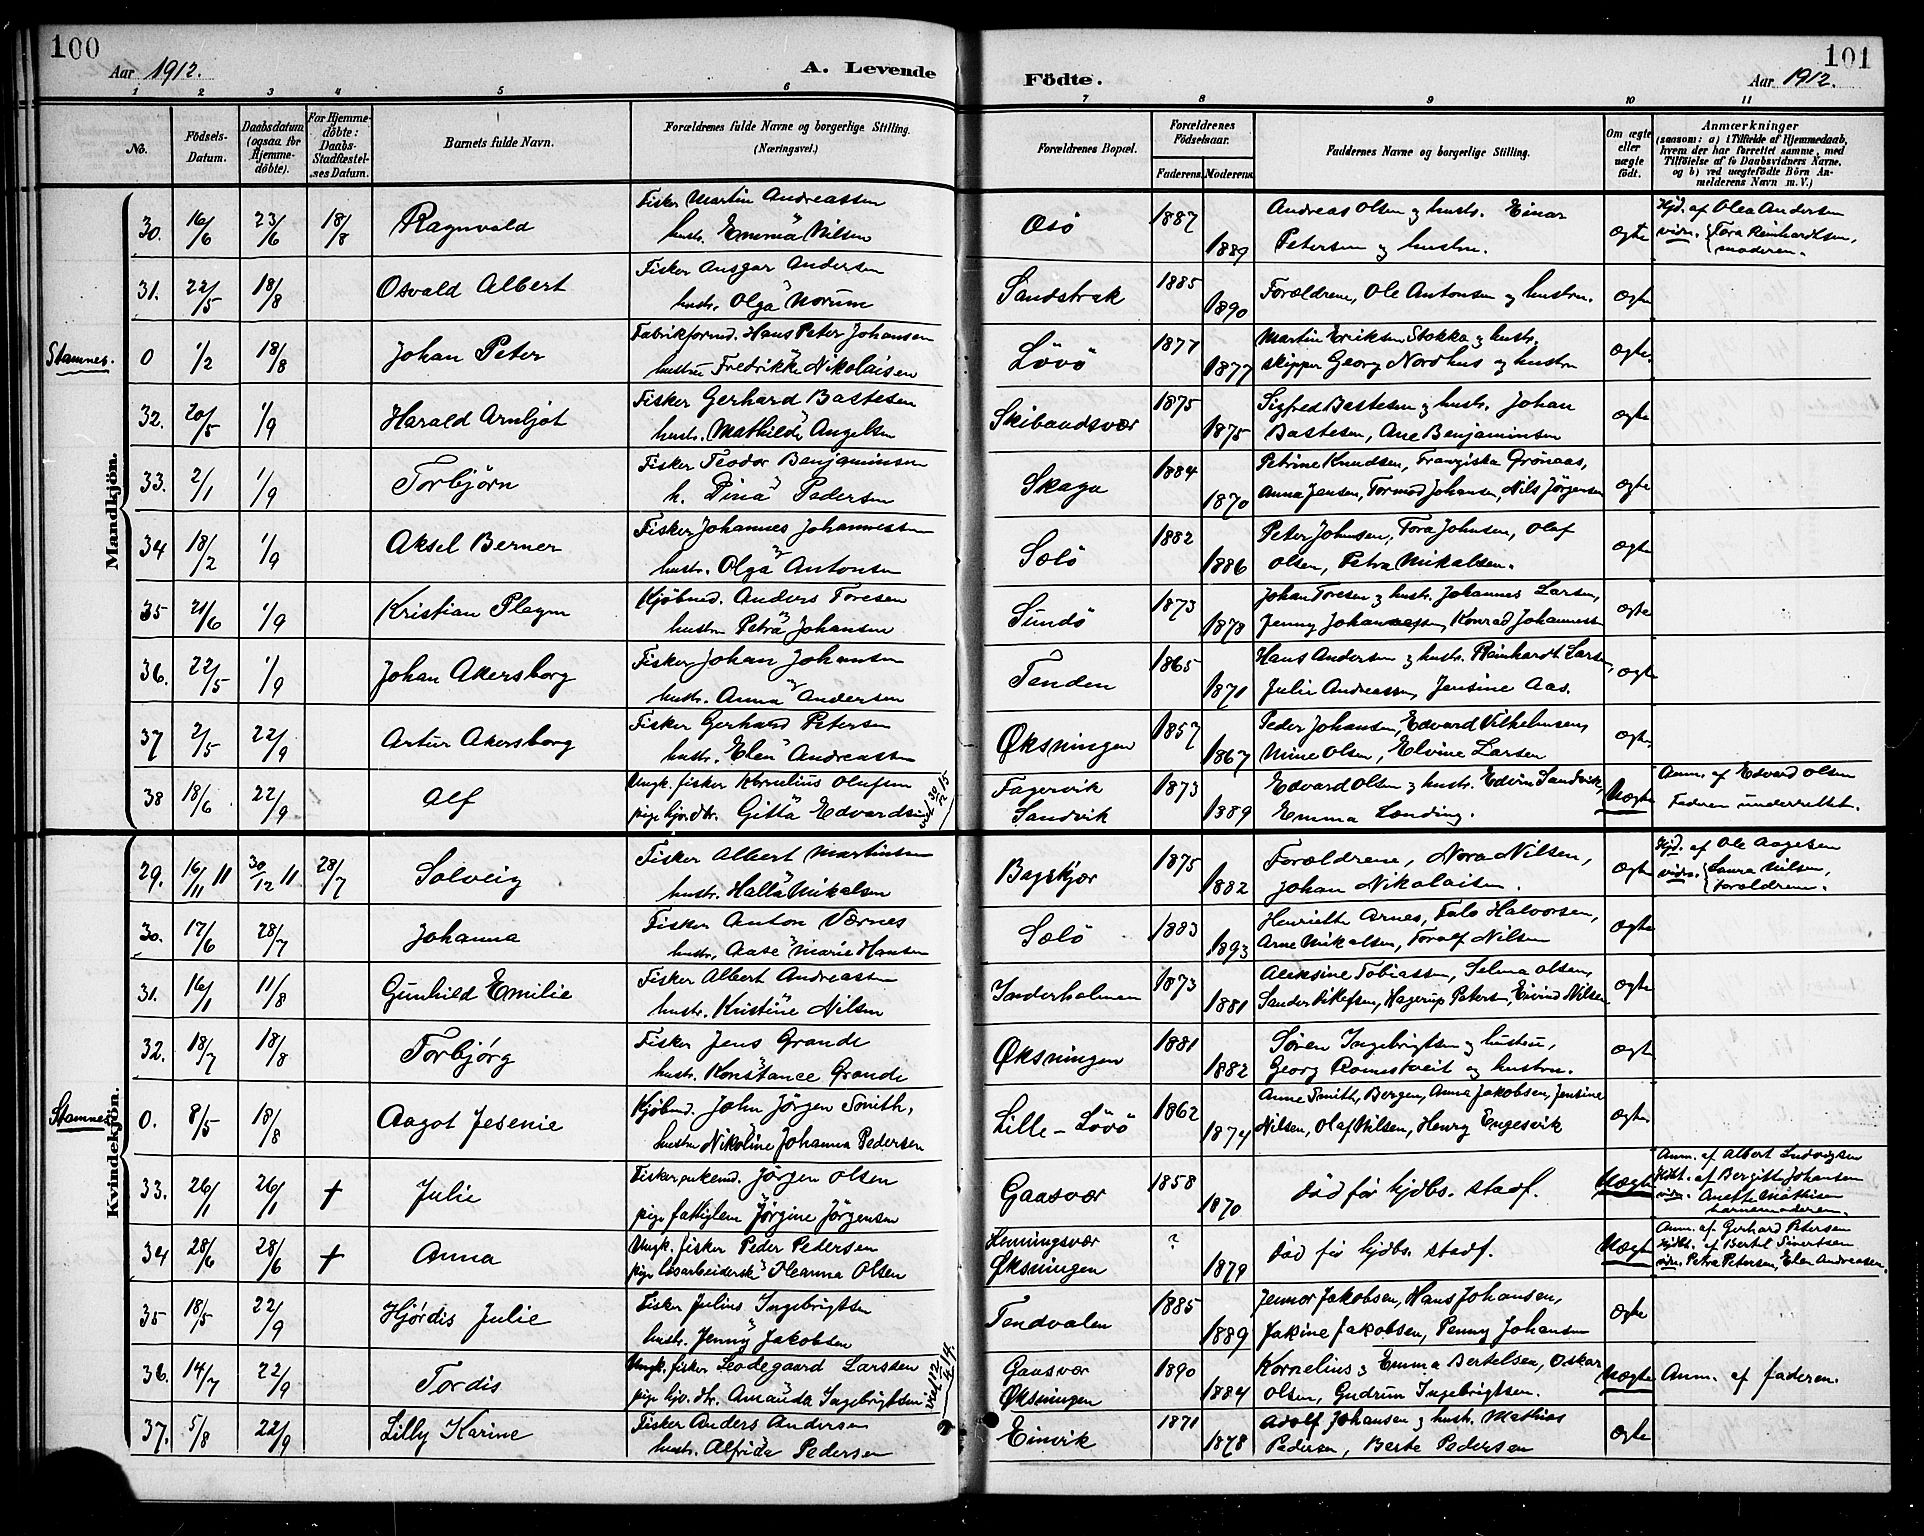 100
Aar 1912.
A. Levende
Födte.
101
Aar 1912.
1 2 3 4 5 6 7 8 9 10 11
No.
Födsels-Datum.
Daabsdatum (ogsaa for Hjemmedöbte).
For Hjemmedöbte: Daabs-Stadfæstelses Datum.
Barnets fulde Navn.
Forældrenes fulde Navne og borgerlige Stilling. (Næringsvei.)
Forældrenes Bopæl.
Forældrenes Födselsaar.
Faderens. Moderens.
Faddernes Navne og borgerlige Stilling.
Om ægte eller uægte födt.
Anmærkninger
(saasom: a) i Tilfælde af Hjemmedaab, hvem der har forrettet samme, med Tilföielse af to Daabsvidners Navne, og b) ved uægtefödte Börn Anmelderens Navn m. V.)
Mandkjön.
30. 16/6 23/6 18/8 Ragnvald Fisker Martin Andreassen Osö 1887 Andreas Olsen og hustr. Einar ægte Hjd. af Olea Andersen
hustr. Emma Nilsen 1889 Petersen og hustru. vidn. Tora Reinhardtsen, moderen.
31. 22/5 18/8 Osvald Albert Fisker Ansgar Andersen Sandstrak 1885 Forældrene, Ole Antonsen og hustru. ægte
hustr. Olga Norum 1890
Stamnes. 0 1/2 18/8 Johan Peter Fabrikformd. Hans Peter Johansen Lövö 1877 Martin Eriksen Stokka og hustr. ægte.
hustru Fredrikke Nikolaisen 1877 skipper Georg Nordhus og hustru
32. 20/5 1/9 Harald Arnljot Fisker Gerhard Bastesen Skibaadsvær 1875 Sigfred Bastesen og hustr. Johan ægte
hustr. Mathilde Angelsen 1875 Bastesen, Ane Benjaminsen
33. 2/1 1/9 Torbjørn Fisker Teodor Benjaminsen Skaga 1884 Petrine Knudsen, Franziska Grönaas, ægte
h. Dina Pedersen 1870 Anna Jensen, Tormod Johansen, Nils Jörgensen
34 18/2 1/9 Aksel Berner Fisker Johannes Johannessen Sölö 1882 Peter Johnsen, Tora Johnsen, Olaf ægte
hustr. Olga Antonsen 1886 Olsen, Petra Mikalsen.
35 21/6 1/9 Kristian Plagm Kjöbmd. Anders Toresen Sundö 1873 Johan Toresen og hustr. Johannes Larsen, ægte
hustru Petra Johansen 1878 Jenny Johannessen, Konrad Johannessen
36. 22/5 1/9 Johan Akersborg Fisker Johan Johansen Tenden 1865 Hans Andersen og hustr. Reinhardt Larsen, ægte
hustr. Anna Andersen 1871 Julie Andreassen, Jensine Aas.
37 2/5 22/9 Artur Akersborg Fisker Gerhard Petersen Øksningen 1857 Peder Johansen, Edvard Vilhelmsen, ægte
hustr. Elen Andreassen 1867 Mine Olsen, Elvine Larsen
38 18/6 22/9 Alf Ungk. fisker Kornelius Olufsen Fagervik 1873 Edvard Olsen og hustr. Edvin Sandvik, Uægte Anm. af Edvard Olsen
pige hjv. dtr. Gitta Edvardsen Sandvik 1889 Emma Londing. Faderen underrettet.
Kvindekjön.
29. 16/11 11 30/12 11. 28/7 Solveig Fisker Albert Martinsen Bagskjær 1875 Forældrene, Nora Nilsen, ægte Hjd. af Ole Aagesen
hustr. Halla Mikalsen 1882 Johan Nikolaisen. vidn. Laura Nilsen, forældrene.
30. 17/6 28/7 Johanna Fisker Anton Værnes Sölö 1883 Henriette Arnes, Falo Halvorsen, ægte
hustr. Aase Marie Hansen 1893 Arne Mikalsen, Toralf Nilsen
31. 16/1 11/8 Gunhild Emilie Fisker Albert Andreassen Inderholmen 1873 Aleksine Tobiassen, Selma Olsen, ægte
hustr. Kristine Nilsen 1881 Sander Ditlefsen, Hagerup Petersen, Eivind Nilsen
32. 18/7 18/8 Torbjørg Fisker Jens Grande Øksningen 1881 Søren Ingebrigtsen og hustru, ægte
hustr. Konstance Grande 1882 Georg Romestveit og hustru.
Stamnes. 0. 8/5 18/8 Aagot Jesenie Kjöbmd. John Jörgen Smith, Lille-Lövö 1862 Anne Smith, Bergen, Anna Jakobsen, Jensine ægte
hustru Nikoline Johanna Pedersen 1874 Nilsen, Olaf Nilsen, Henry Engesvik
33. 26/1 26/1 † Julie Fisker, enkemd. Jörgen Olsen Gaasvær 1858 död för hjdbs. stadf. Uægte Anm. af Albert Ludvigsen
pige fattiglem Jörgine Jörgensen 1870 Hjdbt. af Bergitte Johansen
vidn. Anette Mathisen barnemoderen.
34 28/6 28/6 † Anna Ungk. fisker Peder Pedersen Henningsvær ? död för hjdbs. stadf. Uægte Anm. af Gerhard Petersen
pige løsarbeiderske Hanna Olsen Øksningen 1879 Hjdbt. af Bertel Sivertsen
vidn. Petra Petersen, Elen Andreassen.
35 18/5 22/9 Hjørdis Julie Fisker Julius Ingebrigtsen Tendvalen 1885 Jennor Jakobsen, Hans Johansen, ægte
hustr. Jenny Jakobsen 1889 Jakine Jakobsen, Penny Johansen
36. 14/7 22/9 Tordis Ungk. fisker Leodegaard Larssen Gaasvær 1890 Kornelius og Emma Bertelsen, Oskar Uægte Anm. af faderen.
pige hjv. dtr. Amanda Ingebrigtsen Øksningen 1884 Olsen, Gudrun Ingebrigtsen.
37. 5/8 22/9 Lilly Karine Fisker Anders Andersen Einvik 1871 Adolf Johansen og hustr. Mathias ægte
hustr. Alfrida Pedersen 1878 Pedersen, Berte Pedersen